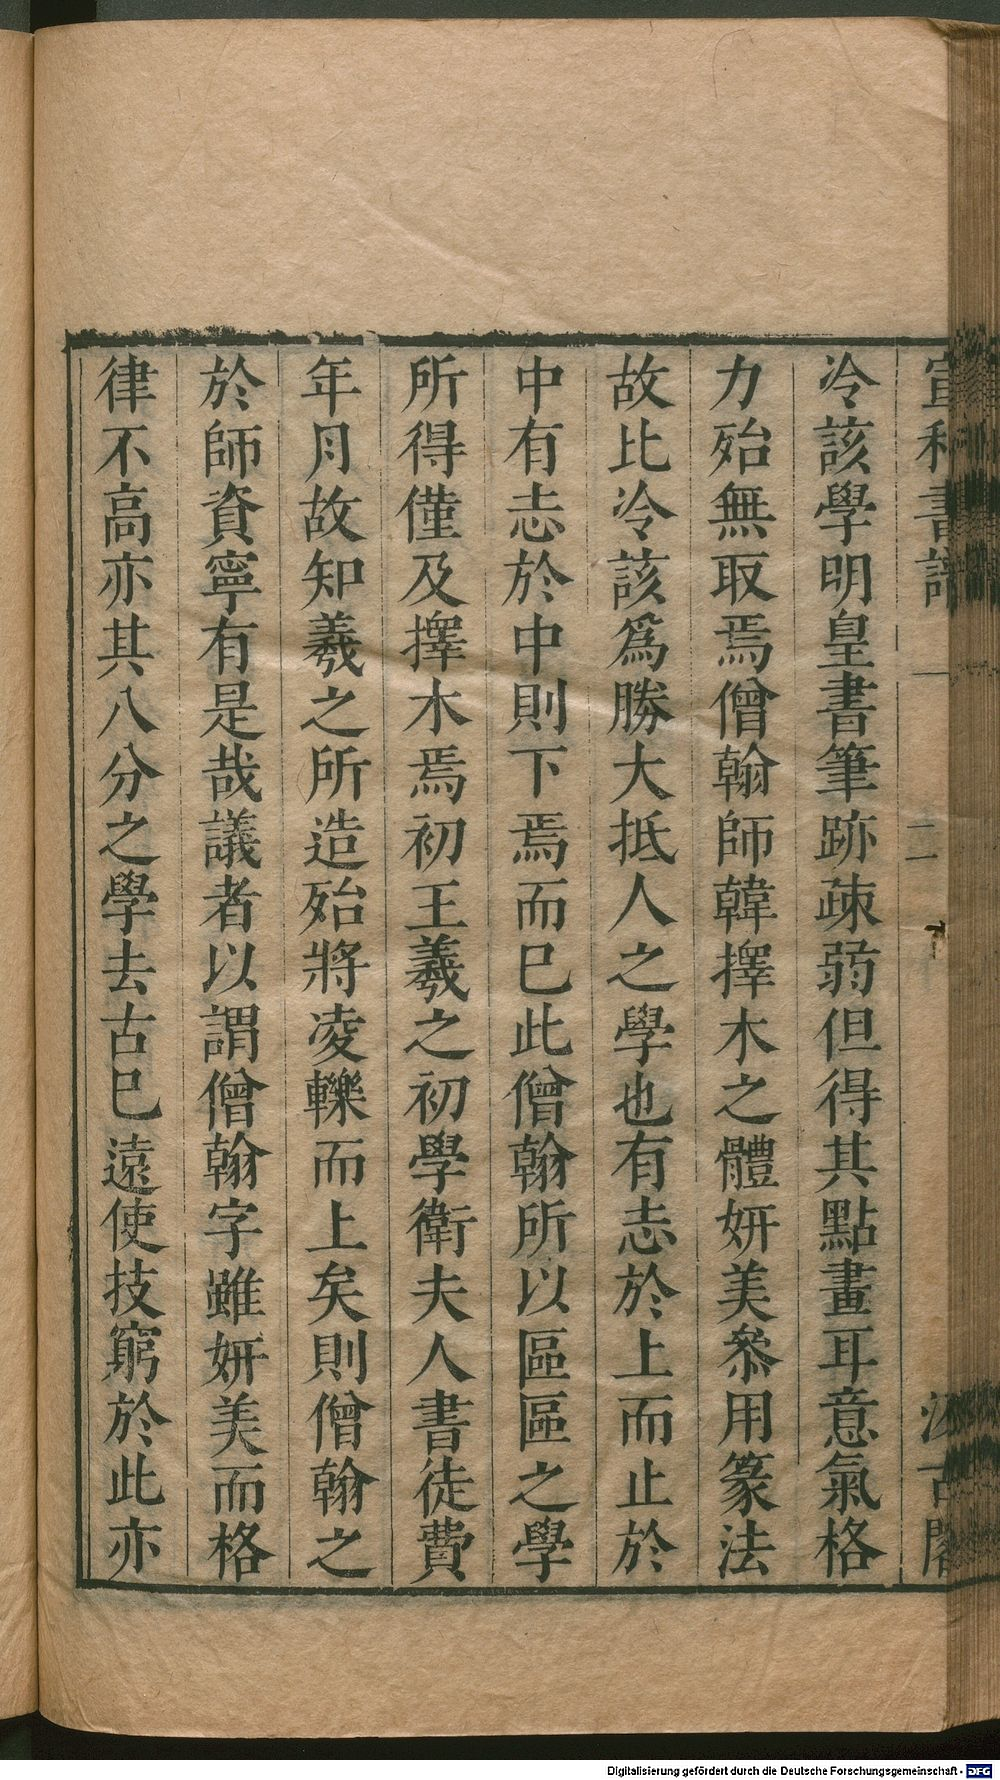 宣和書譜 二 汲古閣
冷該學明皇書筆跡疎弱但得其點畫耳意氣格
力殆無取焉僧翰師韓擇木之體妍美叅用篆法
故比冷該爲勝大抵人之學也有志於上而止於
中有志於中則下焉而巳此僧翰所以區區之學
所得僅及擇木焉初王羲之初學衛夫人書徒費
年月故知羲之所造殆將凌轢而上矣則僧翰之
於師資寧有是哉議者以謂僧翰字雖妍美而格
律不高亦其八分之學去古巳遠使技窮於此亦
Digitalisierung gefördert durch die Deutsche Forschungsgemeinschaft - DFG